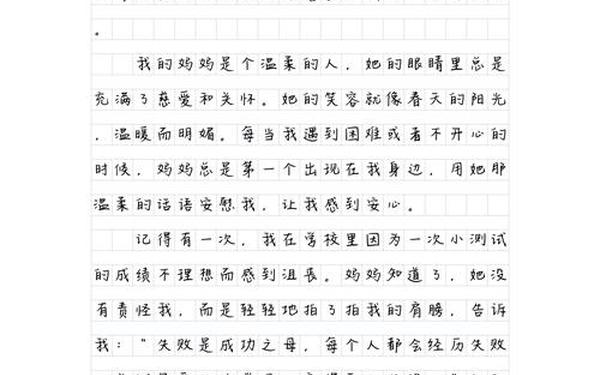 。
我的妈妈是个温柔的人，她的眼睛里总是
充满了慈爱和关怀。她的笑容就像春天的阳光
，温暖而明媚。每当我遇到困难或者不开心的
时候，妈妈总是第一个出现在我身边，用她那
温柔的话语安慰我，让我感到安心。
记得有一次，我在学校里因为一次小测试
的成绩不理想而感到沮丧。妈妈知道了，她没
有责怪我，而是轻轻地拍了拍我的肩膀，告诉
我：“失败是成功之母，每个人都会经历失败